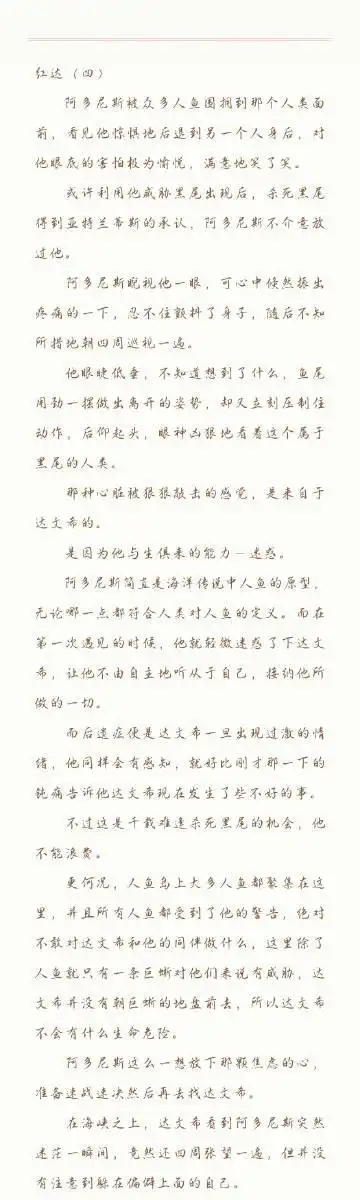 红达（四）
阿多尼斯被众多人鱼围拥到那个人类面
前，看见他惊惧地后退到另一个人身后，对
他眼底的害怕极为愉悦，满意地笑了笑。
或许利用他威胁黑尾出现后，杀死黑尾
得到亚特兰蒂斯的承认，阿多尼斯不介意放
过他。
阿多尼斯睨视他一眼，可心中倏然振出
疼痛的一下，忍不住颤抖了身子，随后不知
所措地朝四周巡视一遍。
他眼睫低垂，不知道想到了什么，鱼尾
用劲一摆做出离开的姿势，却又立刻压制住
动作，后仰起头，眼神凶狠地看着这个属于
黑尾的人类。
那种心脏被狠狠敲击的感觉，是来自于
达文希的。
是因为他与生俱来的能力－迷惑。
阿多尼斯简直是海洋传说中人鱼的原型，
无论哪一点都符合人类对人鱼的定义。而在
第一次遇见的时候，他就轻微迷惑了下达文
希，让他不由自主地听从于自己，接纳他所
做的一切。
而后遗症便是达文希一旦出现过激的情
绪，他同样会有感知，就好比刚才那一下的
钝痛告诉他达文希现在发生了些不好的事。
不过这是千载难逢杀死黑尾的机会，他
不能浪费。
更何况，人鱼岛上大多人鱼都聚集在这
里，并且所有人鱼都受到了他的警告，绝对
不敢对达文希和他的同伴做什么，这里除了
人鱼就只有一条巨蜥对他们来说有威胁，达
文希并没有朝巨蜥的地盘前去，所以达文希
不会有什么生命危险。
阿多尼斯这么一想放下那颗焦虑的心，
准备速战速决然后再去找达文希。
在海峡之上，达文希看到阿多尼斯突然
迷茫一瞬间，竟然还四周张望一遍，但并没
有注意到躲在偏僻上面的自己。